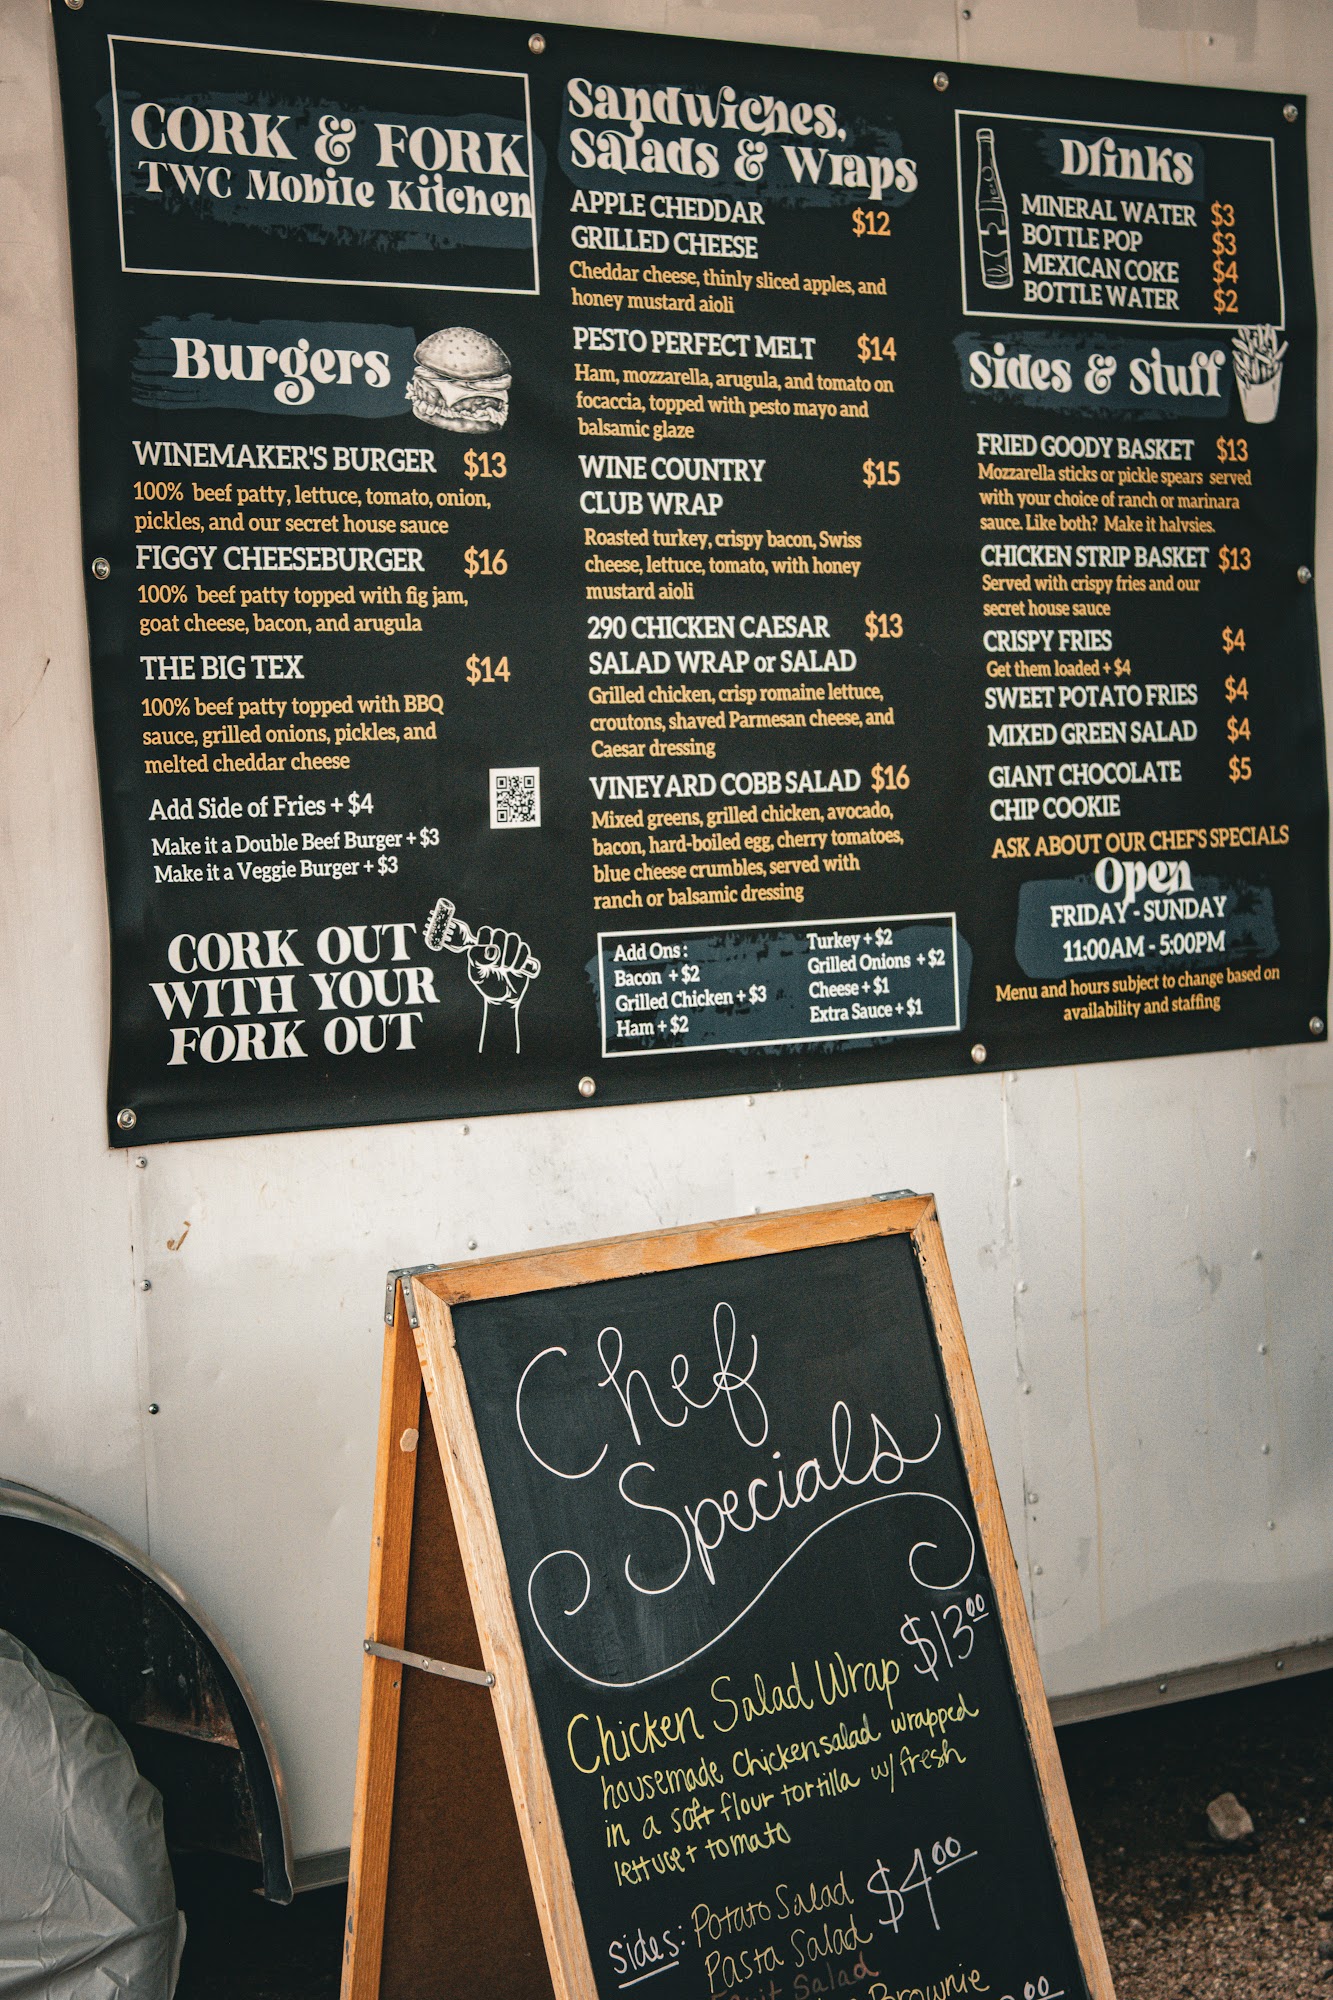 CORK & FORK
TWC Mobile Kitchen
Burgers
WINEMAKER'S BURGER $13
100% beef patty, lettuce, tomato, onion,
pickles, and our secret house sauce
FIGGY CHEESEBURGER $16
100% beef patty topped with fig jam,
goat cheese, bacon, and arugula
THE BIG TEX $14
100% beef patty topped with BBQ
sauce, grilled onions, pickles, and
melted cheddar cheese
Add Side of Fries + $4
Make it a Double Beef Burger + $3
Make it a Veggie Burger + $3
CORK OUT
WITH YOUR
FORK OUT
Sandwiches,
Salads & Wraps
APPLE CHEDDAR $12
GRILLED CHEESE
Cheddar cheese, thinly sliced apples, and
honey mustard aioli
PESTO PERFECT MELT $14
Ham, mozzarella, arugula, and tomato on
focaccia, topped with pesto mayo and
balsamic glaze
WINE COUNTRY $15
CLUB WRAP
Roasted turkey, crispy bacon, Swiss
cheese, lettuce, tomato, with honey
mustard aioli
290 CHICKEN CAESAR $13
SALAD WRAP or SALAD
Grilled chicken, crisp romaine lettuce,
croutons, shaved Parmesan cheese, and
Caesar dressing
VINEYARD COBB SALAD $16
Mixed greens, grilled chicken, avocado,
bacon, hard-boiled egg, cherry tomatoes,
blue cheese crumbles, served with
ranch or balsamic dressing
Add Ons :
Bacon + $2
Grilled Chicken + $3
Ham + $2
Turkey + $2
Grilled Onions + $2
Cheese + $1
Extra Sauce + $1
Drinks
MINERAL WATER $3
BOTTLE POP $3
MEXICAN COKE $4
BOTTLE WATER $2
Sides & Stuff
FRIED GOODY BASKET $13
Mozzarella sticks or pickle spears served
with your choice of ranch or marinara
sauce. Like both? Make it halvsies.
CHICKEN STRIP BASKET $13
Served with crispy fries and our
secret house sauce
CRISPY FRIES $4
Get them loaded + $4
SWEET POTATO FRIES $4
MIXED GREEN SALAD $4
GIANT CHOCOLATE $5
CHIP COOKIE
ASK ABOUT OUR CHEF'S SPECIALS
Open
FRIDAY - SUNDAY
11:00AM - 5:00PM
Menu and hours subject to change based on
availability and staffing
Chef
Specials
Chicken Salad Wrap $13.00
housemade Chickensalad wrapped
in a soft flour tortilla w/ fresh
lettuce + tomato
sides: Potato Salad $4.00
Pasta Salad
Fruit Salad
Brownie